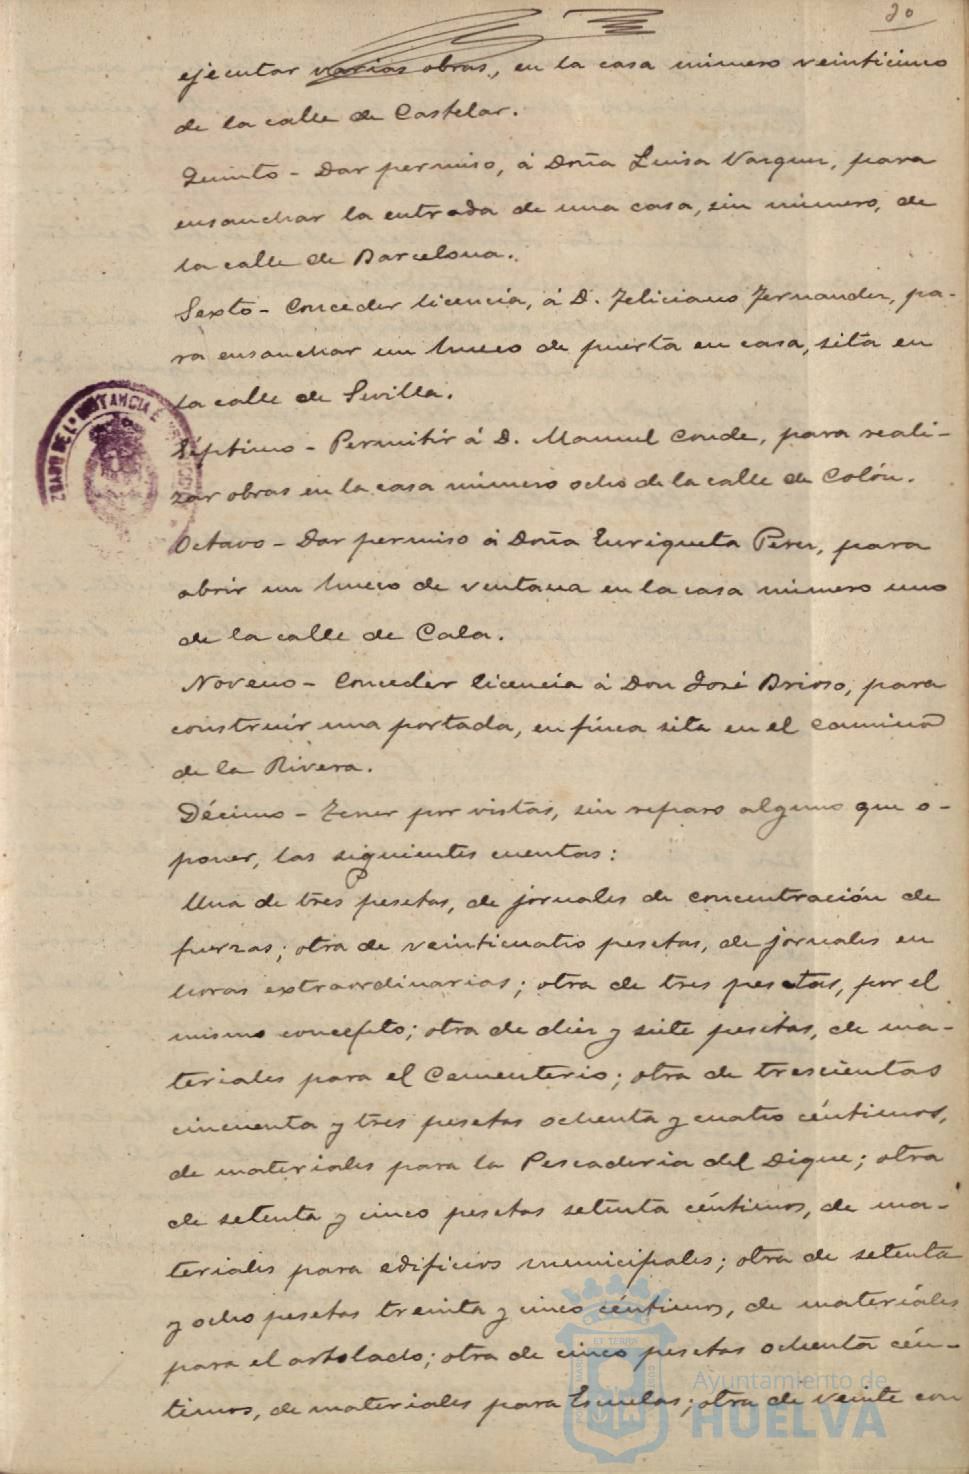 20
ejecutar varias obras, en la casa número veinticinco
de la calle de Castelar.
Quinto - Dar permiso, á Doña Luisa Vazquez, para
ensanchar la entrada de una casa, sin número, de
la calle de Barcelona.
Sexto - Conceder licencia, á D. Feliciano Fernandez, pa-
ra ensanchar un hueco de puerta en casa, sita en
la calle de Sevilla.
Séptimo - Permitir á D. Manuel Conde, para reali-
zar obras en la casa número ocho de la calle de Colón.
Octavo - Dar permiso á Doña Enriqueta Perez, para
abrir un hueco de ventana en la casa número uno
de la calle de Cala.
Noveno - Conceder licencia á Don José Brioso, para
construir una portada, en finca sita en el camino
de la Rivera.
Décimo - Tener por vistas, sin reparo alguno que o-
poner, las siguientes cuentas:
Una de tres pesetas, de jornales de concentración de
fuerzas; otra de veinticuatro pesetas, de jornales en
horas extraordinarias; otra de tres pesetas, por el
mismo concepto; otra de diez y siete pesetas, de ma-
teriales para el Cementerio; otra de trescientas
cincuenta y tres pesetas ochenta y cuatro céntimos,
de materiales para la Pescaderia del Dique; otra
de setenta y cinco pesetas setenta céntimos, de ma-
teriales para edificios municipales; otra de setenta
y ocho pesetas treinta y cinco céntimos, de materiales
para el arbolado; otra de cinco pesetas ochenta cén-
timos, de materiales para Escuelas; otra de veinte con
Ayuntamiento de
HUELVA